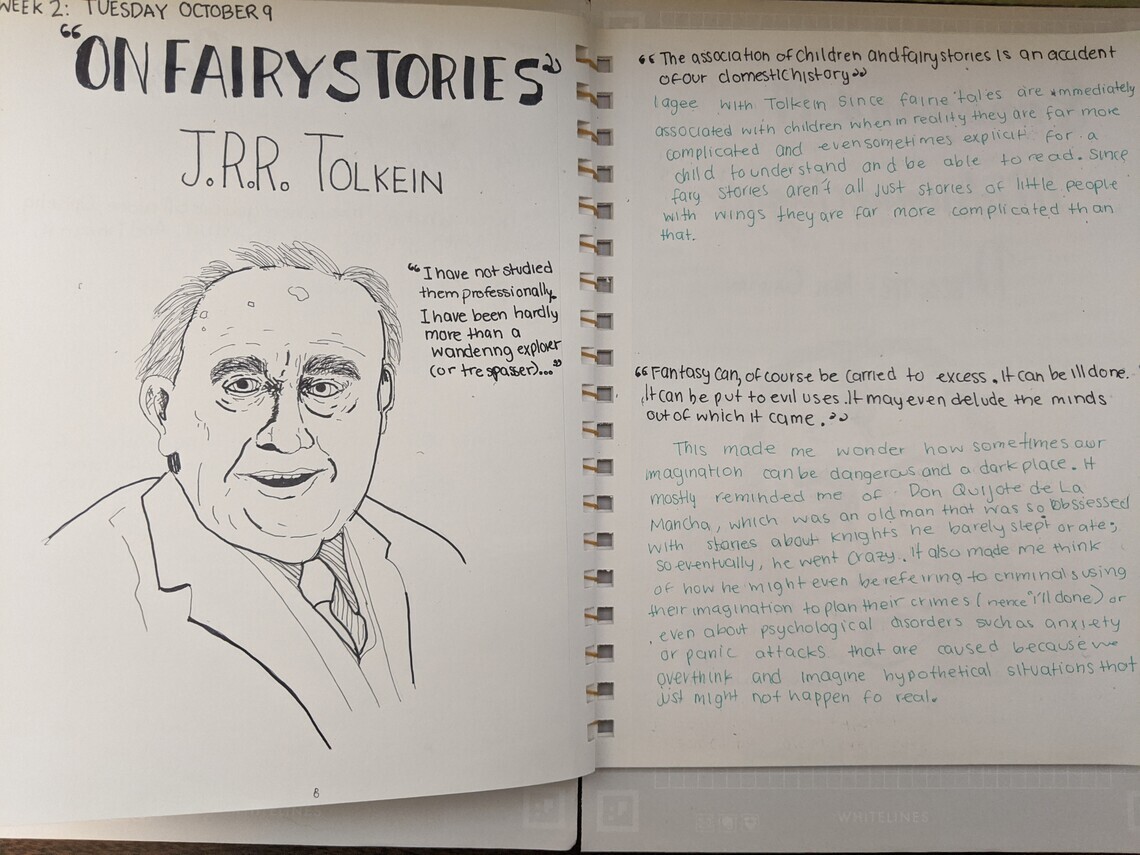 WEEK 2: TUESDAY OCTOBER 9
"ON FAIRYSTORIES"
J.R.R. TOLKEIN
"I have not studied
them professionally.
I have been hardly
more than a
wandering explorer
(or trespasser)..."
8
"The association of children and fairystories is an accident
of our domestic history"
I agee with Tolkein since fairie tales are immediately
associated with children when in reality they are far more
complicated and even sometimes explicit for a
child to understand and be able to read. Since
fary stories aren't all just stories of little people
with wings they are far more complicated than
that.
"Fantasy can, of course be carried to excess. It can be ill done.
It can be put to evil uses. It may even delude the minds
out of which it came."
This made me wonder how sometimes our
imagination can be dangerous and a dark place. It
mostly reminded me of Don Quijote de La
Mancha, which was an old man that was so obssessed
with stories about knights he barely slept or ate;
so eventually, he went crazy. It also made me think
of how he might even be refering to criminals using
their imagination to plan their crimes (hence "i'll done) or
even about psychological disorders such as anxiety
or panic attacks that are caused because we
overthink and imagine hypothetical situations that
just might not happen fo real.
WHITELINES